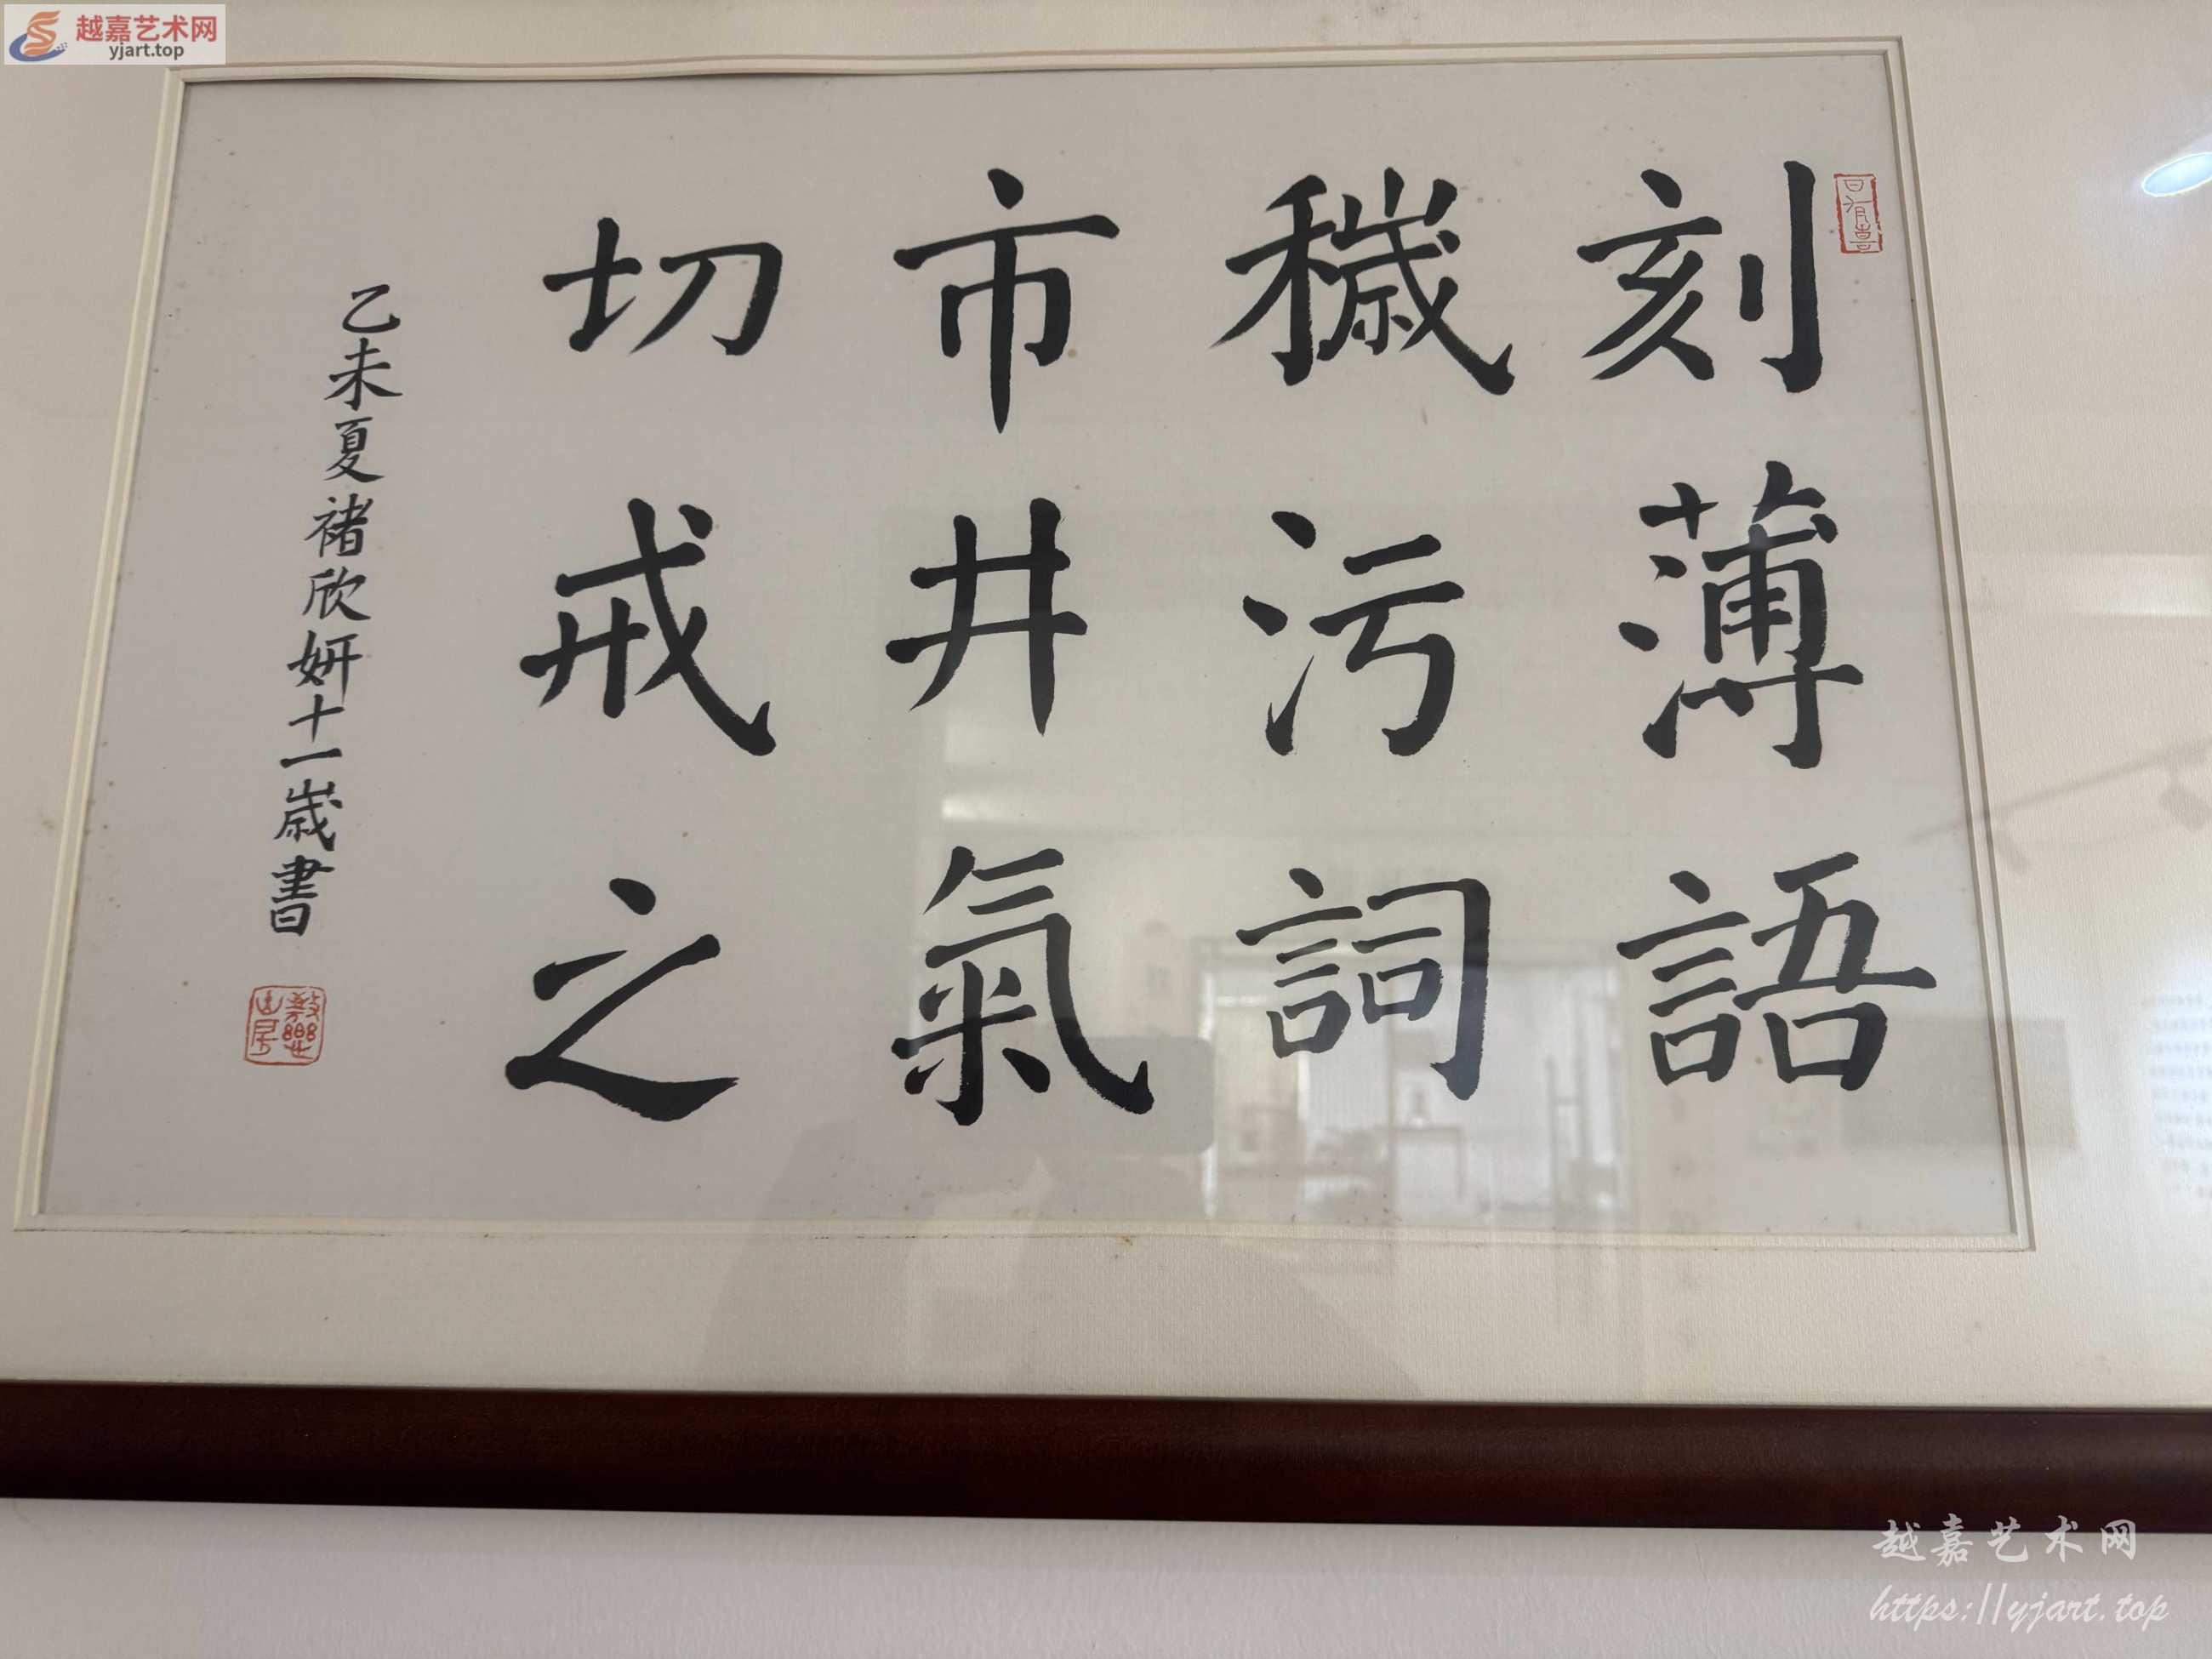 越嘉艺术网
yjart.top
日有憙
刻薄語
穢污詞
市井氣
切戒之
乙未夏褚欣妍十一歲書
越嘉艺术网
https://yjart.top